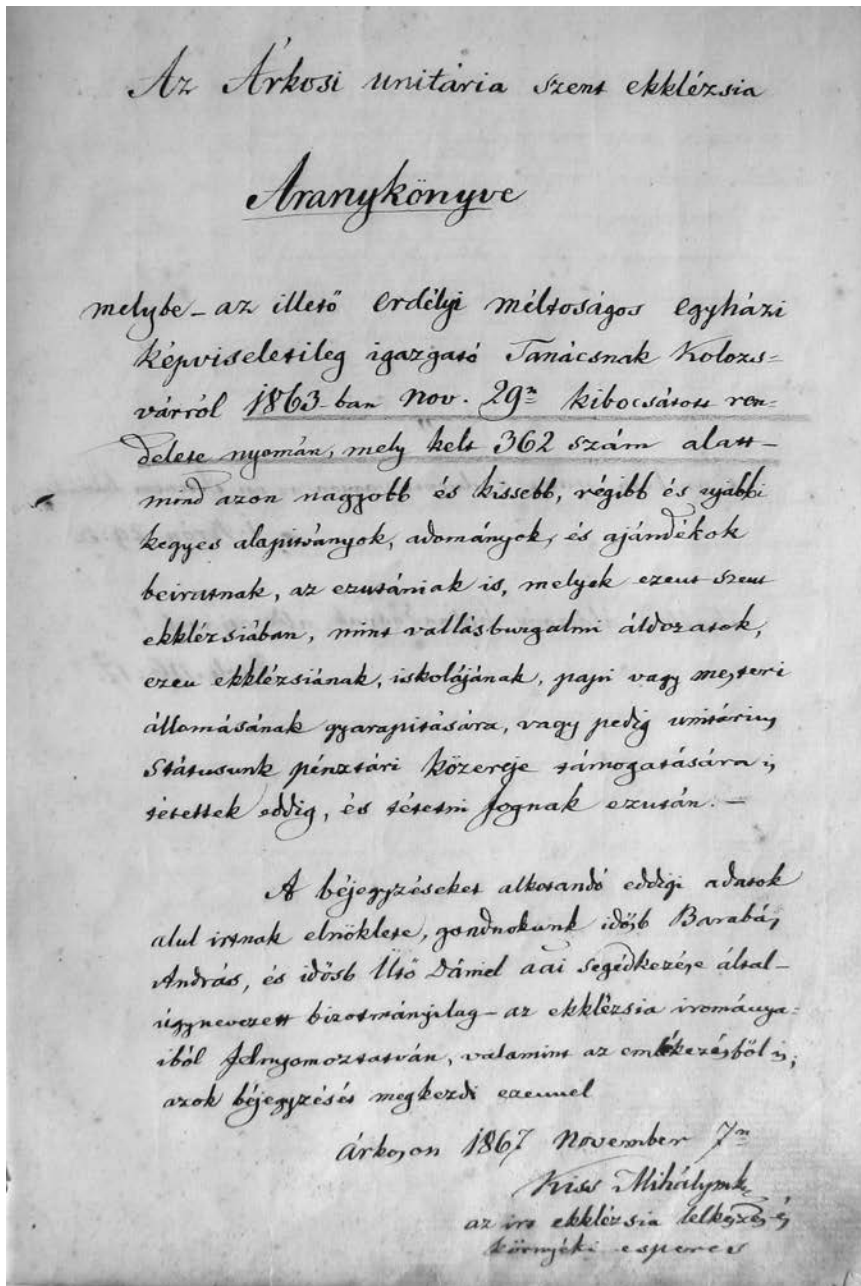 Az Árkosi unitária szent ekklézsia
Aranykönyve
melybe – az illető erdélyi méltoságos egyházi
képviseletileg igazgató Tanácsnak Kolozs=
várról 1863-ban Nov. 29n kibocsátott ren=
delete nyomán, mely kelt 362 szám alatt –
mind azon nagyobb és kissebb, régibb és ujabbi
kegyes alapitványok, adományok, és ajándékok
beiratnak, az ezutániak is, melyek ezent szent
ekklézsiában, mint vallásburgalmi áldozatok,
ezen ekklézsiának, iskolájának, papi vagy mesteri
állomásának gyarapitására, vagy pedig unitárius
Státusunk pénztári közereje támogatására is
tétettek eddig, és tétetni fognak ezután. –
A béjegyzéseket alkotandó eddigi adatok
alul irtnak elnöklete, gondnokunk idősb Barabás
András, és idősb Ütő Dániel segédkezése által –
úgynevezett bizotmányilag – az ekklézsia irománya=
iból felnyomoztatván, valamint az emlékezésből is,
azok béjegyzését megkezdi ezennel
Árkoson 1867 November 7n
Kiss Mihály mk
az irt ekklézsia lelkésze és
környéki esperes